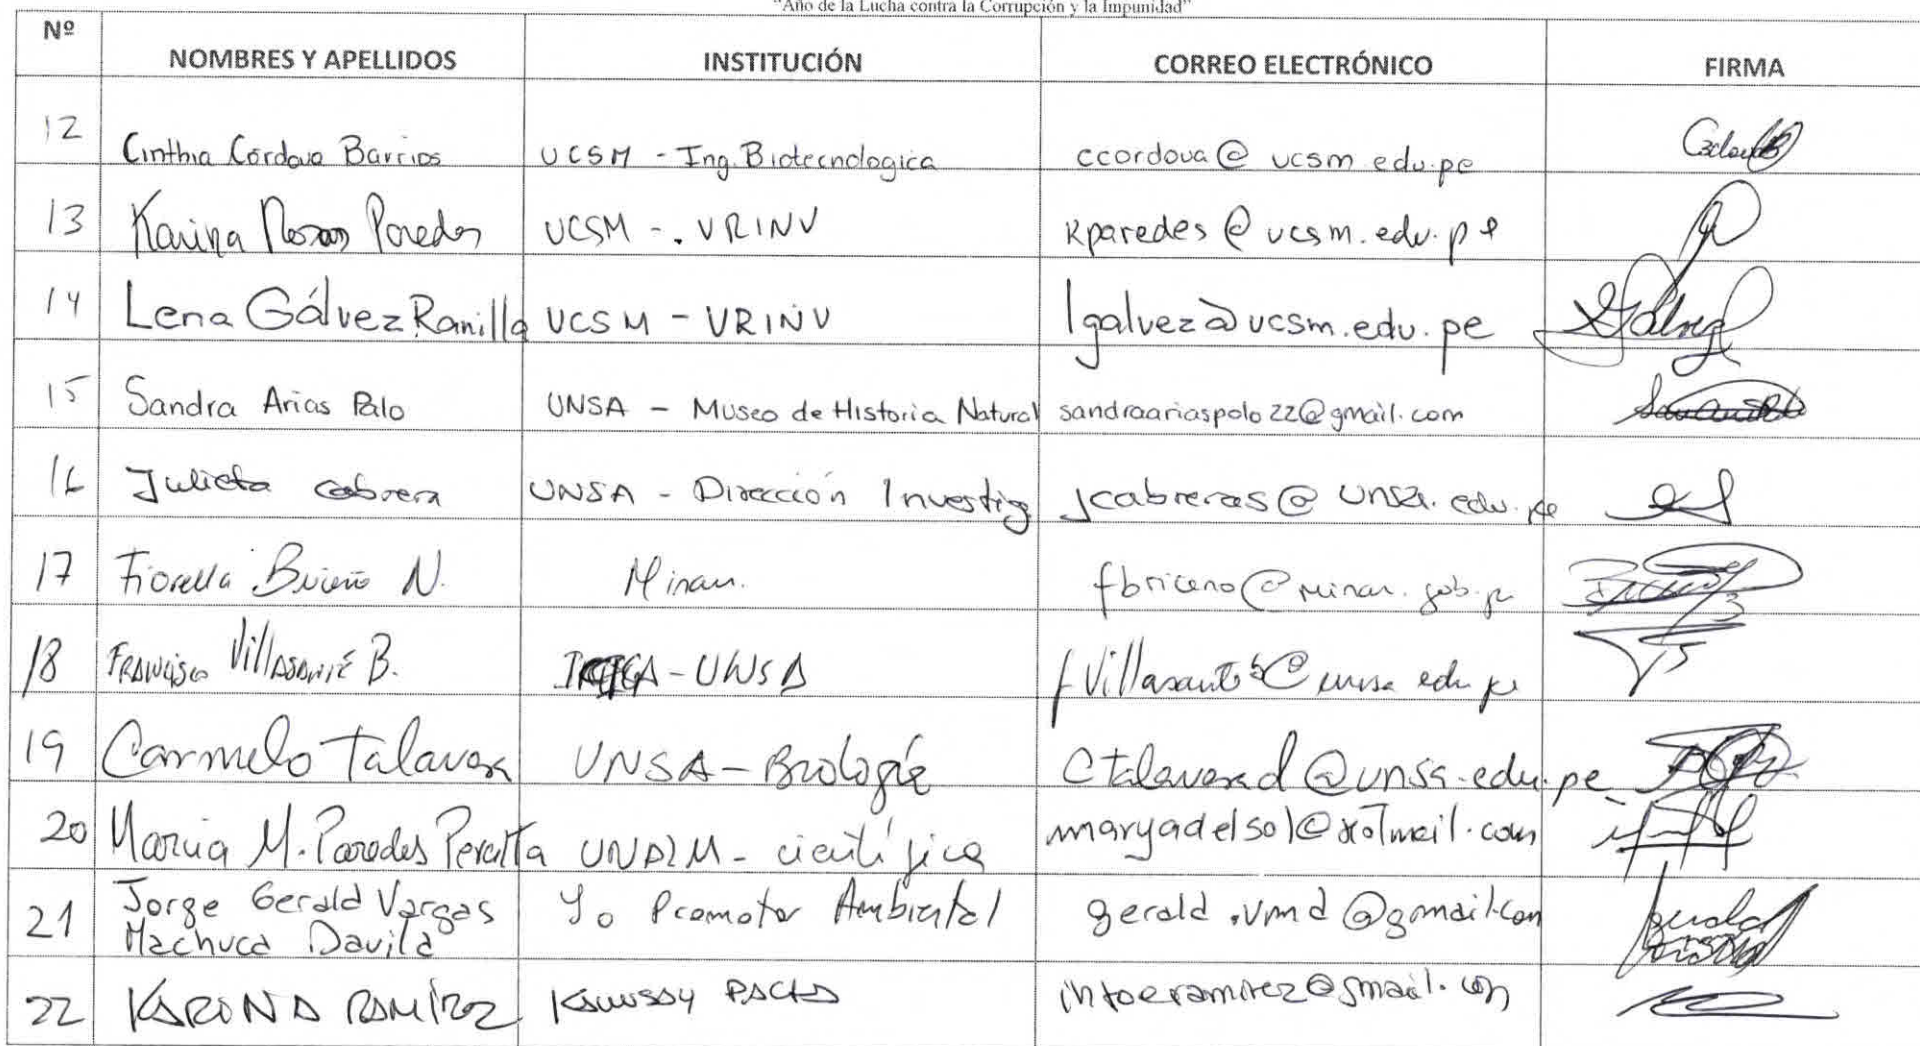 "Año de la Lucha contra la Corrupción y la Impunidad"
Nº NOMBRES Y APELLIDOS INSTITUCIÓN CORREO ELECTRÓNICO FIRMA
12 Cinthia Córdova Barrios UCSM - Ing. Biotecnologica ccordova@ucsm.edu.pe
13 Karina Rosas Paredes UCSM - . VRINV kparedes@ucsm.edu.pe
14 Lena Gálvez Ranilla UCSM - VRINV lgalvez@ucsm.edu.pe
15 Sandra Arias Polo UNSA - Museo de Historia Natural sandraariaspolo22@gmail.com
16 Julieta Cabrera UNSA - Dirección Investig jcabreras@unsa.edu.pe
17 Fiorella N. Minam. fbriceno@minam.gob.pe
18 Francisco Villasante B. - UNSA fvillasante@unsa.edu.pe
19 Carmelo Talavera UNSA - Biología ctalaverad@unsa.edu.pe
20 Maria M. Paredes Peralta UNALM - científica maryadelsol@hotmail.com
21 Jorge Gerald Vargas Machuca Davila Yo Promotor Ambiental gerald.vmd@gmail.com
22 KARINA RAMÍREZ KAWSAY PACHA @gmail.com